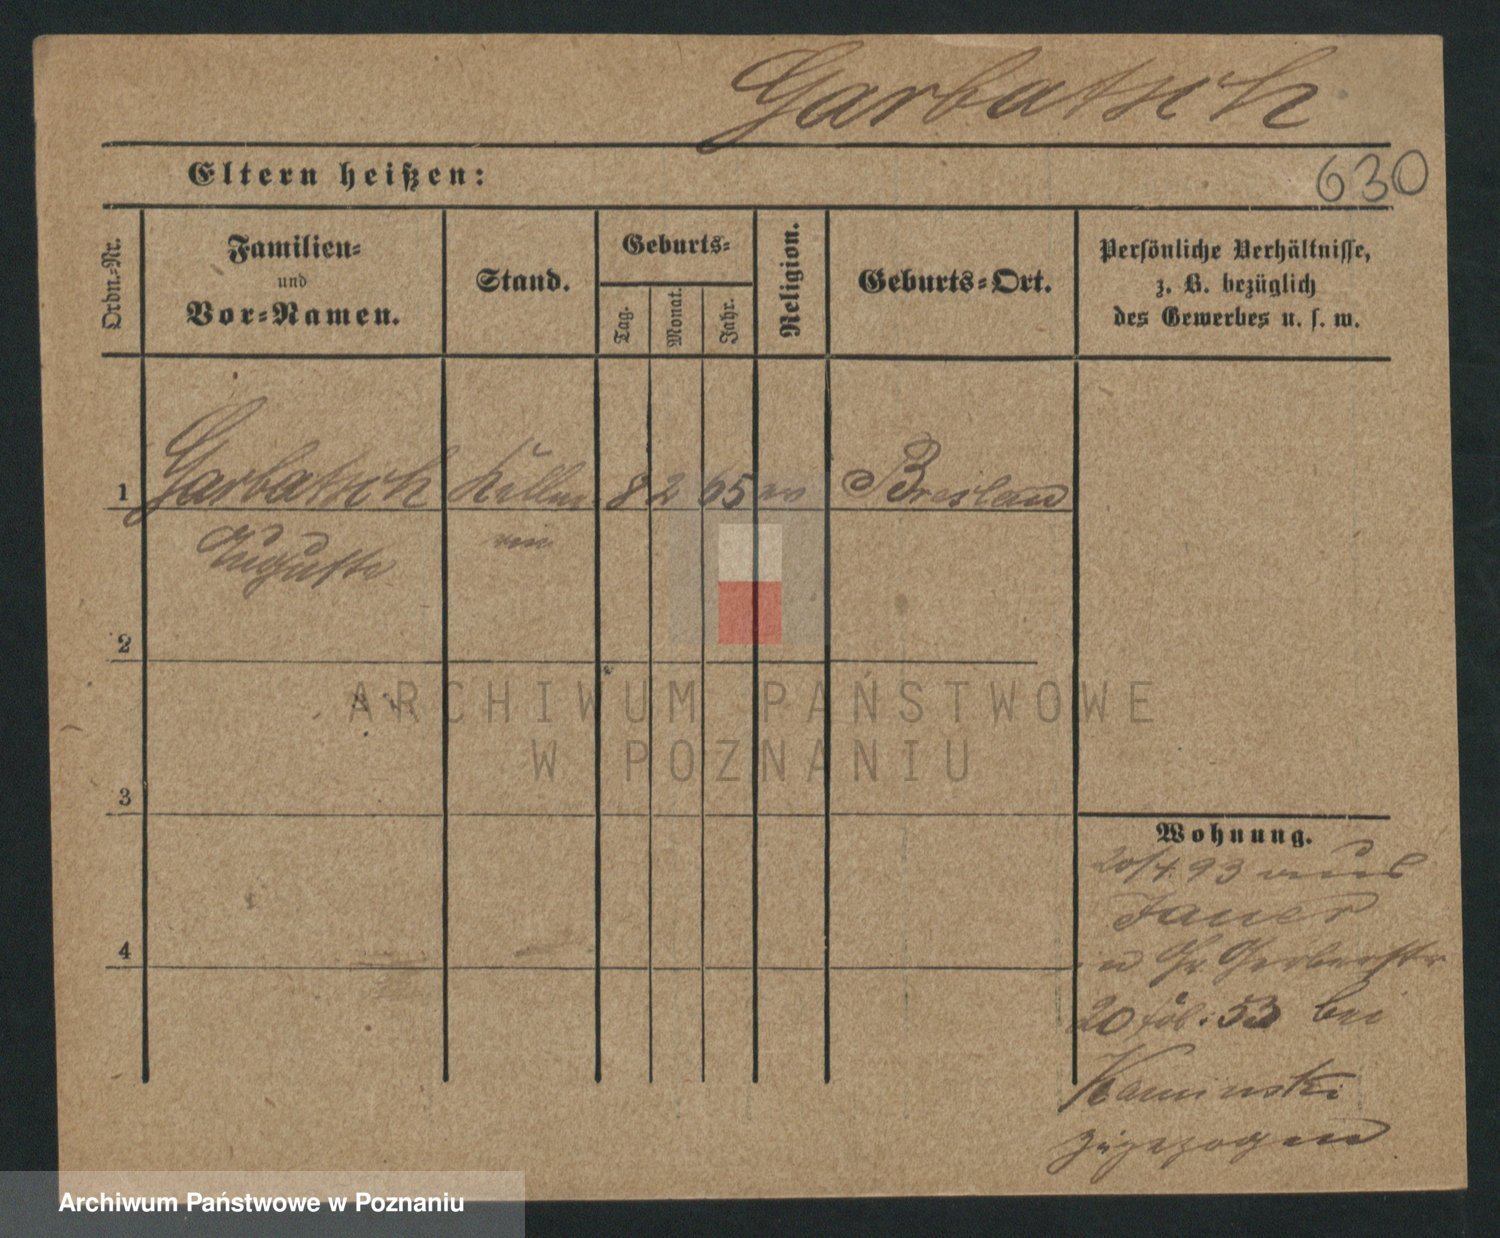 Garbatsch
Eltern heißen:
630
Ordn.-Nr.
Familien-
und
Vor-Namen.
Stand.
Geburts-
Tag.
Monat.
Jahr.
Religion.
Geburts-Ort.
Persönliche Verhältnisse,
z. B. bezüglich
des Gewerbes u. s. w.
1 Garbatsch Kellne 8 2 65 ev Breslau
Auguste rin
2
ARCHIWUM PAŃSTWOWE
W POZNANIU
3
Wohnung.
20/4 93 aus
Jauer
n Gr Gerberstr
20 53 bei
Kaminski
zugezogen
4
Archiwum Państwowe w Poznaniu